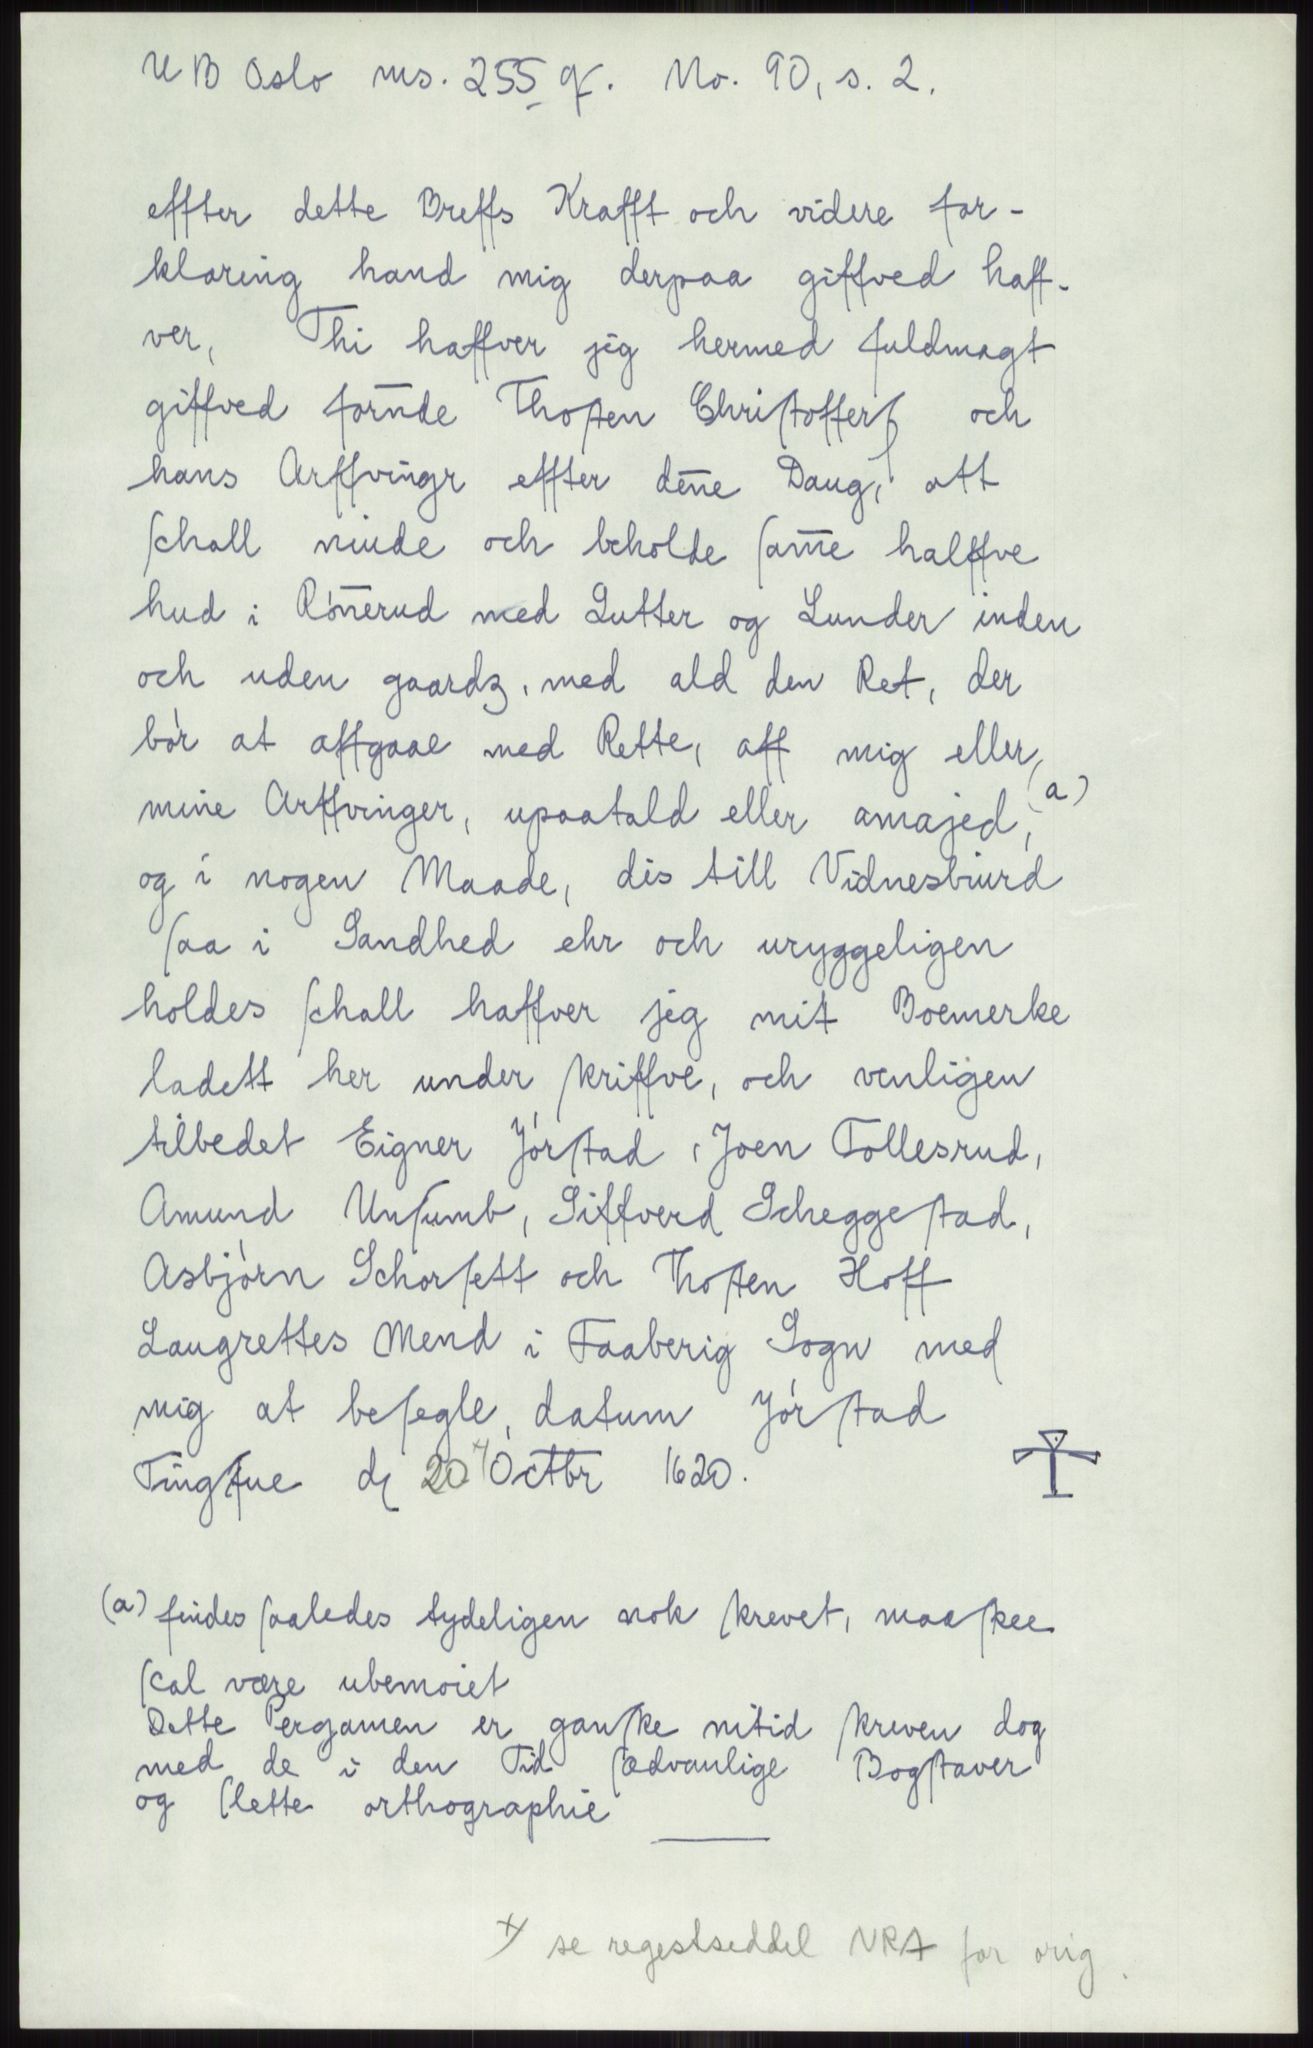 UB Oslo ms. 255 q. No. 90, s. 2.
effter dette Breffs Krafft och videre for-
klaring hand mig derpaa giffved haff-
ver, Thi haffver jig hermed fuldmagt
giffved forn̄de Thosten Christoffers och
hans Arffvingr effter den̄e Daug, att
schall niude och beholde sam̄e halffve
hud i Rón̄erud med Lutter og Lunder inden
och uden gaardz, med ald den Ret, der
bór at affgaae med Rette, aff mig eller
mine Arffvinger, upaatald eller amajed, (a)
og i nogen Maade, dis till Vidnesbiurd
saa i Sandhed ehr och uryggeligen
holdes schall haffver jig mit Boemerke
ladett her under skriffve, och venligen
tilbedet Eigner Jórstad, Joen Tollesrud,
Amund Unsumb, Siffverd Scheggestad,
Asbjórn Schorsett och Thosten Hoff
Laugrettes Mend i Faaberig Sogn med
mig at besegle, datum Jórstad
Tingstue d 20 x) Octbr 1620.
(a) findes saaledes tydeligen nok skrevet, maaskee
skal være ubemoiet
Dette Pergamen er ganske nitid skreven dog
med de i den Tid sædvanlige Bogstaver
og slette orthographie
x) se regestseddel NRA for orig.